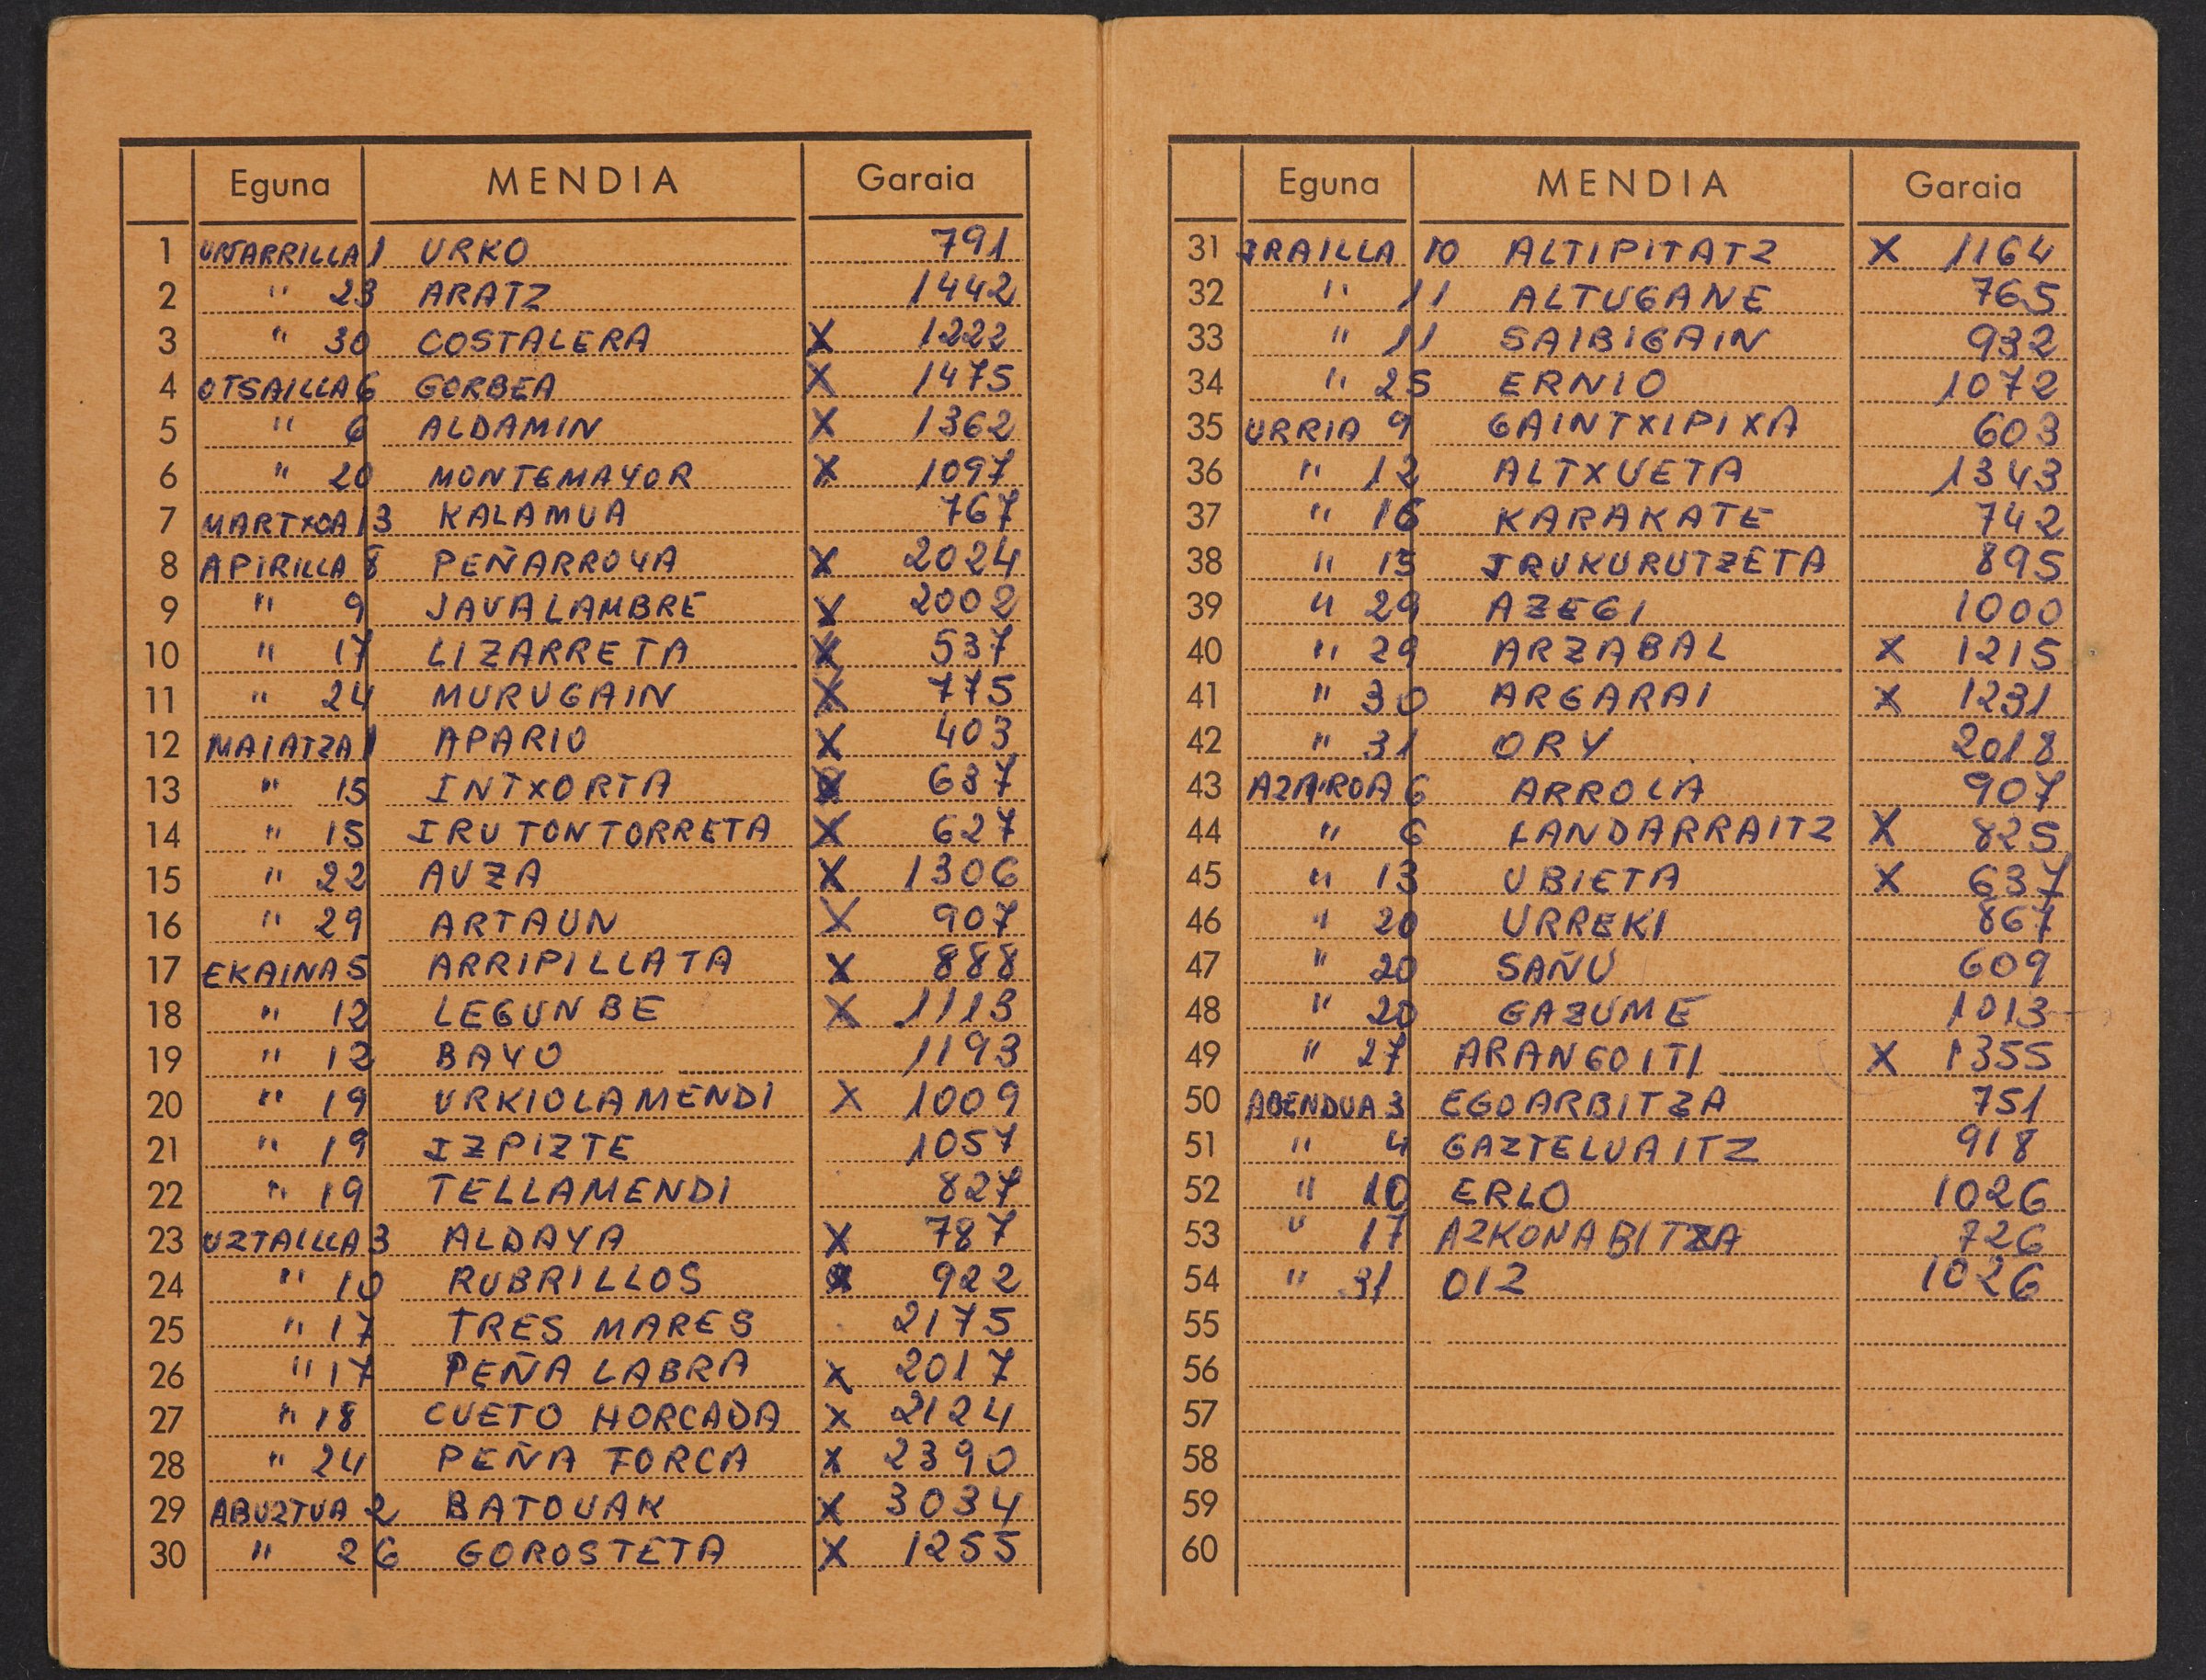 Eguna MENDIA Garaia
1 URTARRILLA 1 URKO 791
2 " 23 ARATZ 1442
3 " 30 COSTALERA X 1222
4 OTSAILLA 6 GORBEA X 1475
5 " 6 ALDAMIN X 1362
6 " 20 MONTEMAYOR X 1097
7 MARTXOA 13 KALAMUA 767
8 APIRILLA 8 PEÑARROYA X 2024
9 " 9 JAVALAMBRE X 2002
10 " 17 LIZARRETA X 537
11 " 24 MURUGAIN X 775
12 MAIATZA 1 APARIO X 403
13 " 15 INTXORTA X 637
14 " 15 IRUTONTORRETA X 627
15 " 22 AUZA X 1306
16 " 29 ARTAUN X 907
17 EKAINA 5 ARRIPILLATA X 888
18 " 12 LEGUNBE X 1113
19 " 12 BAYO 1193
20 " 19 URKIOLAMENDI X 1009
21 " 19 IZPIZTE 1057
22 " 19 TELLAMENDI 827
23 UZTAILLA 3 ALDAYA X 787
24 " 10 RUBRILLOS X 922
25 " 17 TRES MARES 2175
26 " 17 PEÑA LABRA X 2017
27 " 18 CUETO HORCADA X 2124
28 " 24 PEÑA FORCA X 2390
29 ABUZTUA 2 BATOUAK X 3034
30 " 26 GOROSTETA X 1255
Eguna MENDIA Garaia
31 IRAILLA 10 ALTIPITATZ X 1164
32 " 11 ALTUGANE 765
33 " 11 SAIBIGAIN 932
34 " 25 ERNIO 1072
35 URRIA 9 GAINTXIPIXA 603
36 " 12 ALTXUETA 1343
37 " 16 KARAKATE 742
38 " 15 IRUKURUTZETA 895
39 " 29 AZEGI 1000
40 " 29 ARZABAL X 1215
41 " 30 ARGARAI X 1231
42 " 31 ORY 2018
43 AZAROA 6 ARROLA 907
44 " 6 LANDARRAITZ X 825
45 " 13 UBIETA X 637
46 " 20 URREKI 867
47 " 20 SAÑU 609
48 " 20 GAZUME 1013
49 " 27 ARANGOITI X 1355
50 ABENDUA 3 EGOARBITZA 751
51 " 4 GAZTELUAITZ 918
52 " 10 ERLO 1026
53 " 17 AZKONABITZA 726
54 " 31 OIZ 1026
55
56
57
58
59
60